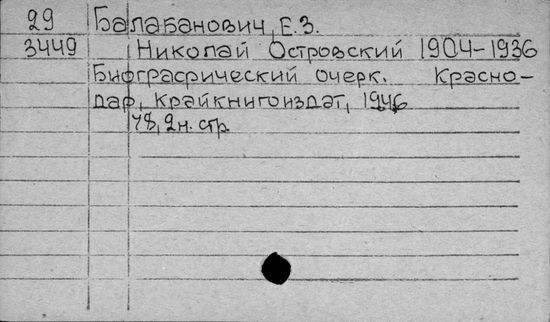 29 Балабанович, Е.З.
3449 Николай Островский 1904-1936
Биографический очерк. Красно-
дар, Крайкнигоиздат, 1946
78, 2 н. стр.